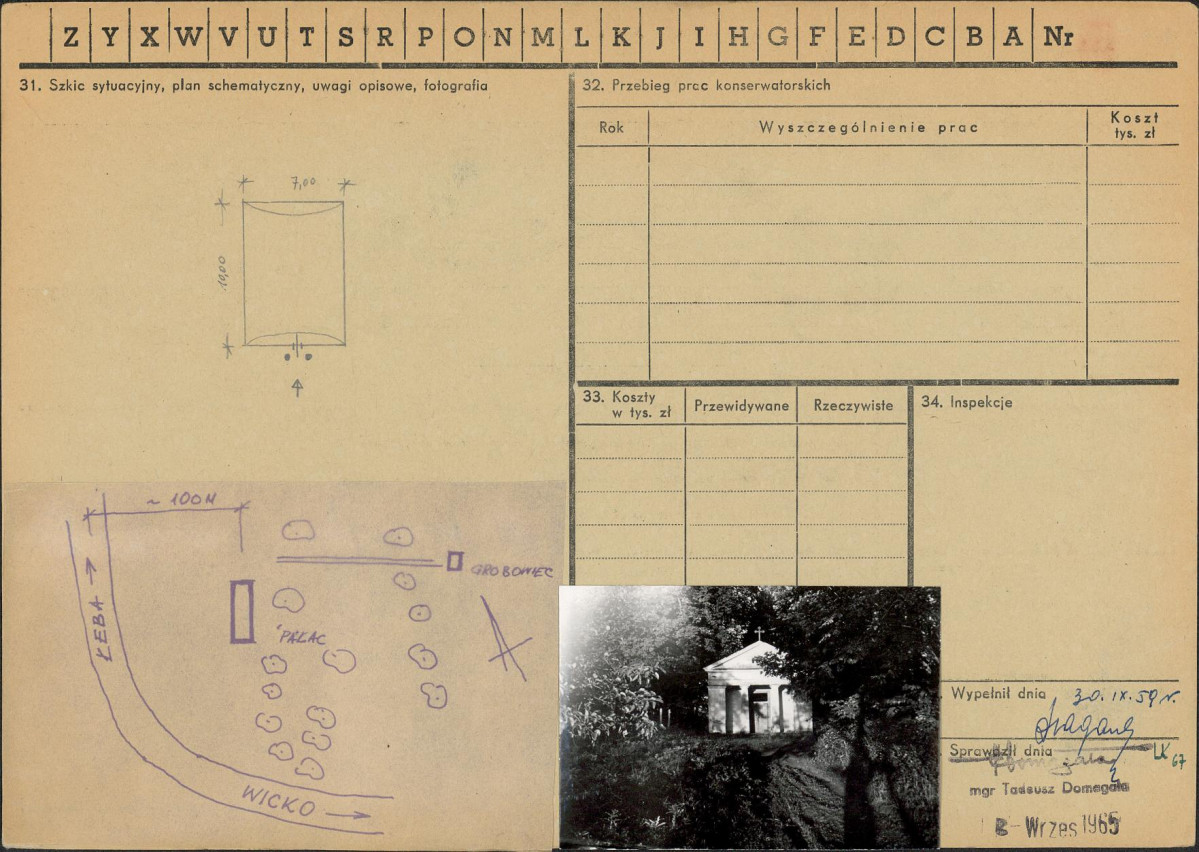 Z Y X W V U T S R P O N M L K J I H G F E D C B A Nr
31. Szkic sytuacyjny, plan schematyczny, uwagi opisowe, fotografia
7,00
10,00
~ 100M
GROBOWIEC
ŁEBA
PAŁAC
WICKO
32. Przebieg prac konserwatorskich
Rok
Wyszczególnienie prac
Koszt
tys. zł
33. Koszty
w tys. zł
Przewidywane
Rzeczywiste
34. Inspekcje
Wypełnił dnia 30.IX.59 r.
Sprawdził dnia
67
mgr Tadeusz Domagała
Wrzes 1965